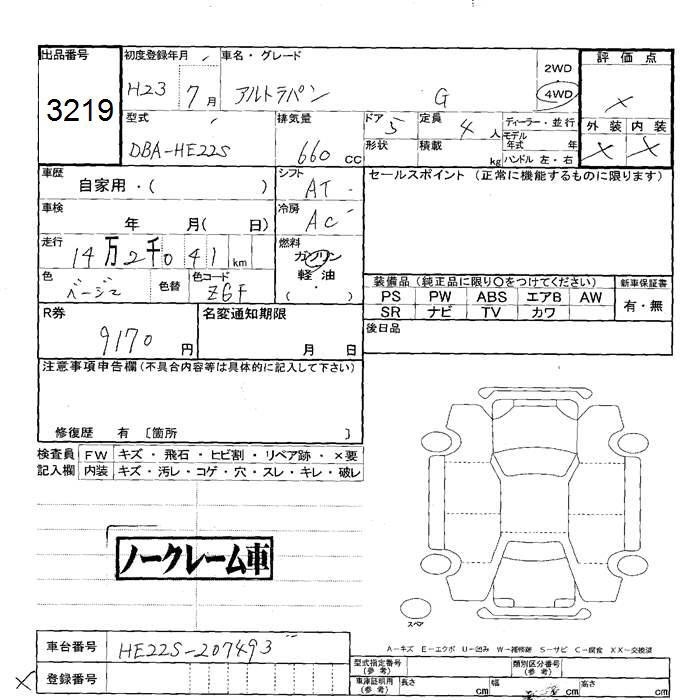 出品番号
3219
初度登録年月
H23 7月
車名・グレード
アルトラパン G
2WD
4WD
評価点
×
外装 内装
× ×
型式
DBA-HE22S
排気量
660 cc
ドア
5
定員
4人
ディーラー・並行
形状
積載
kg
モデル年式 年
ハンドル 左・右
車歴
自家用・( )
シフト
AT
セールスポイント (正常に機能するものに限ります)
車検
年 月( 日)
冷房
AC
走行
14万2千041km
燃料
ガソリン
軽・油
( )
色
ベージュ
色替
色コード
Z6F
装備品(純正品に限り○をつけてください)
新車保証書
PS PW ABS エアB AW
SR ナビ TV カワ
有・無
R券
9170円
名変通知期限
月 日
後日品
注意事項申告欄(不具合内容等は具体的に記入して下さい)
修復歴 有 〔箇所 〕
検査員
記入欄
FW キズ・飛石・ヒビ割・リペア跡・×要
内装 キズ・汚レ・コゲ・穴・スレ・キレ・破レ
ノークレーム車
スペア
A-キズ E-エクボ U-凹み W-補修跡 S-サビ C-腐食 XX-交換済
車台番号
HE22S-207493
× 登録番号
型式指定番号
(参考)
類別区分番号
(参考)
車庫証明用
(参考)
長さ cm
幅 cm
高さ cm